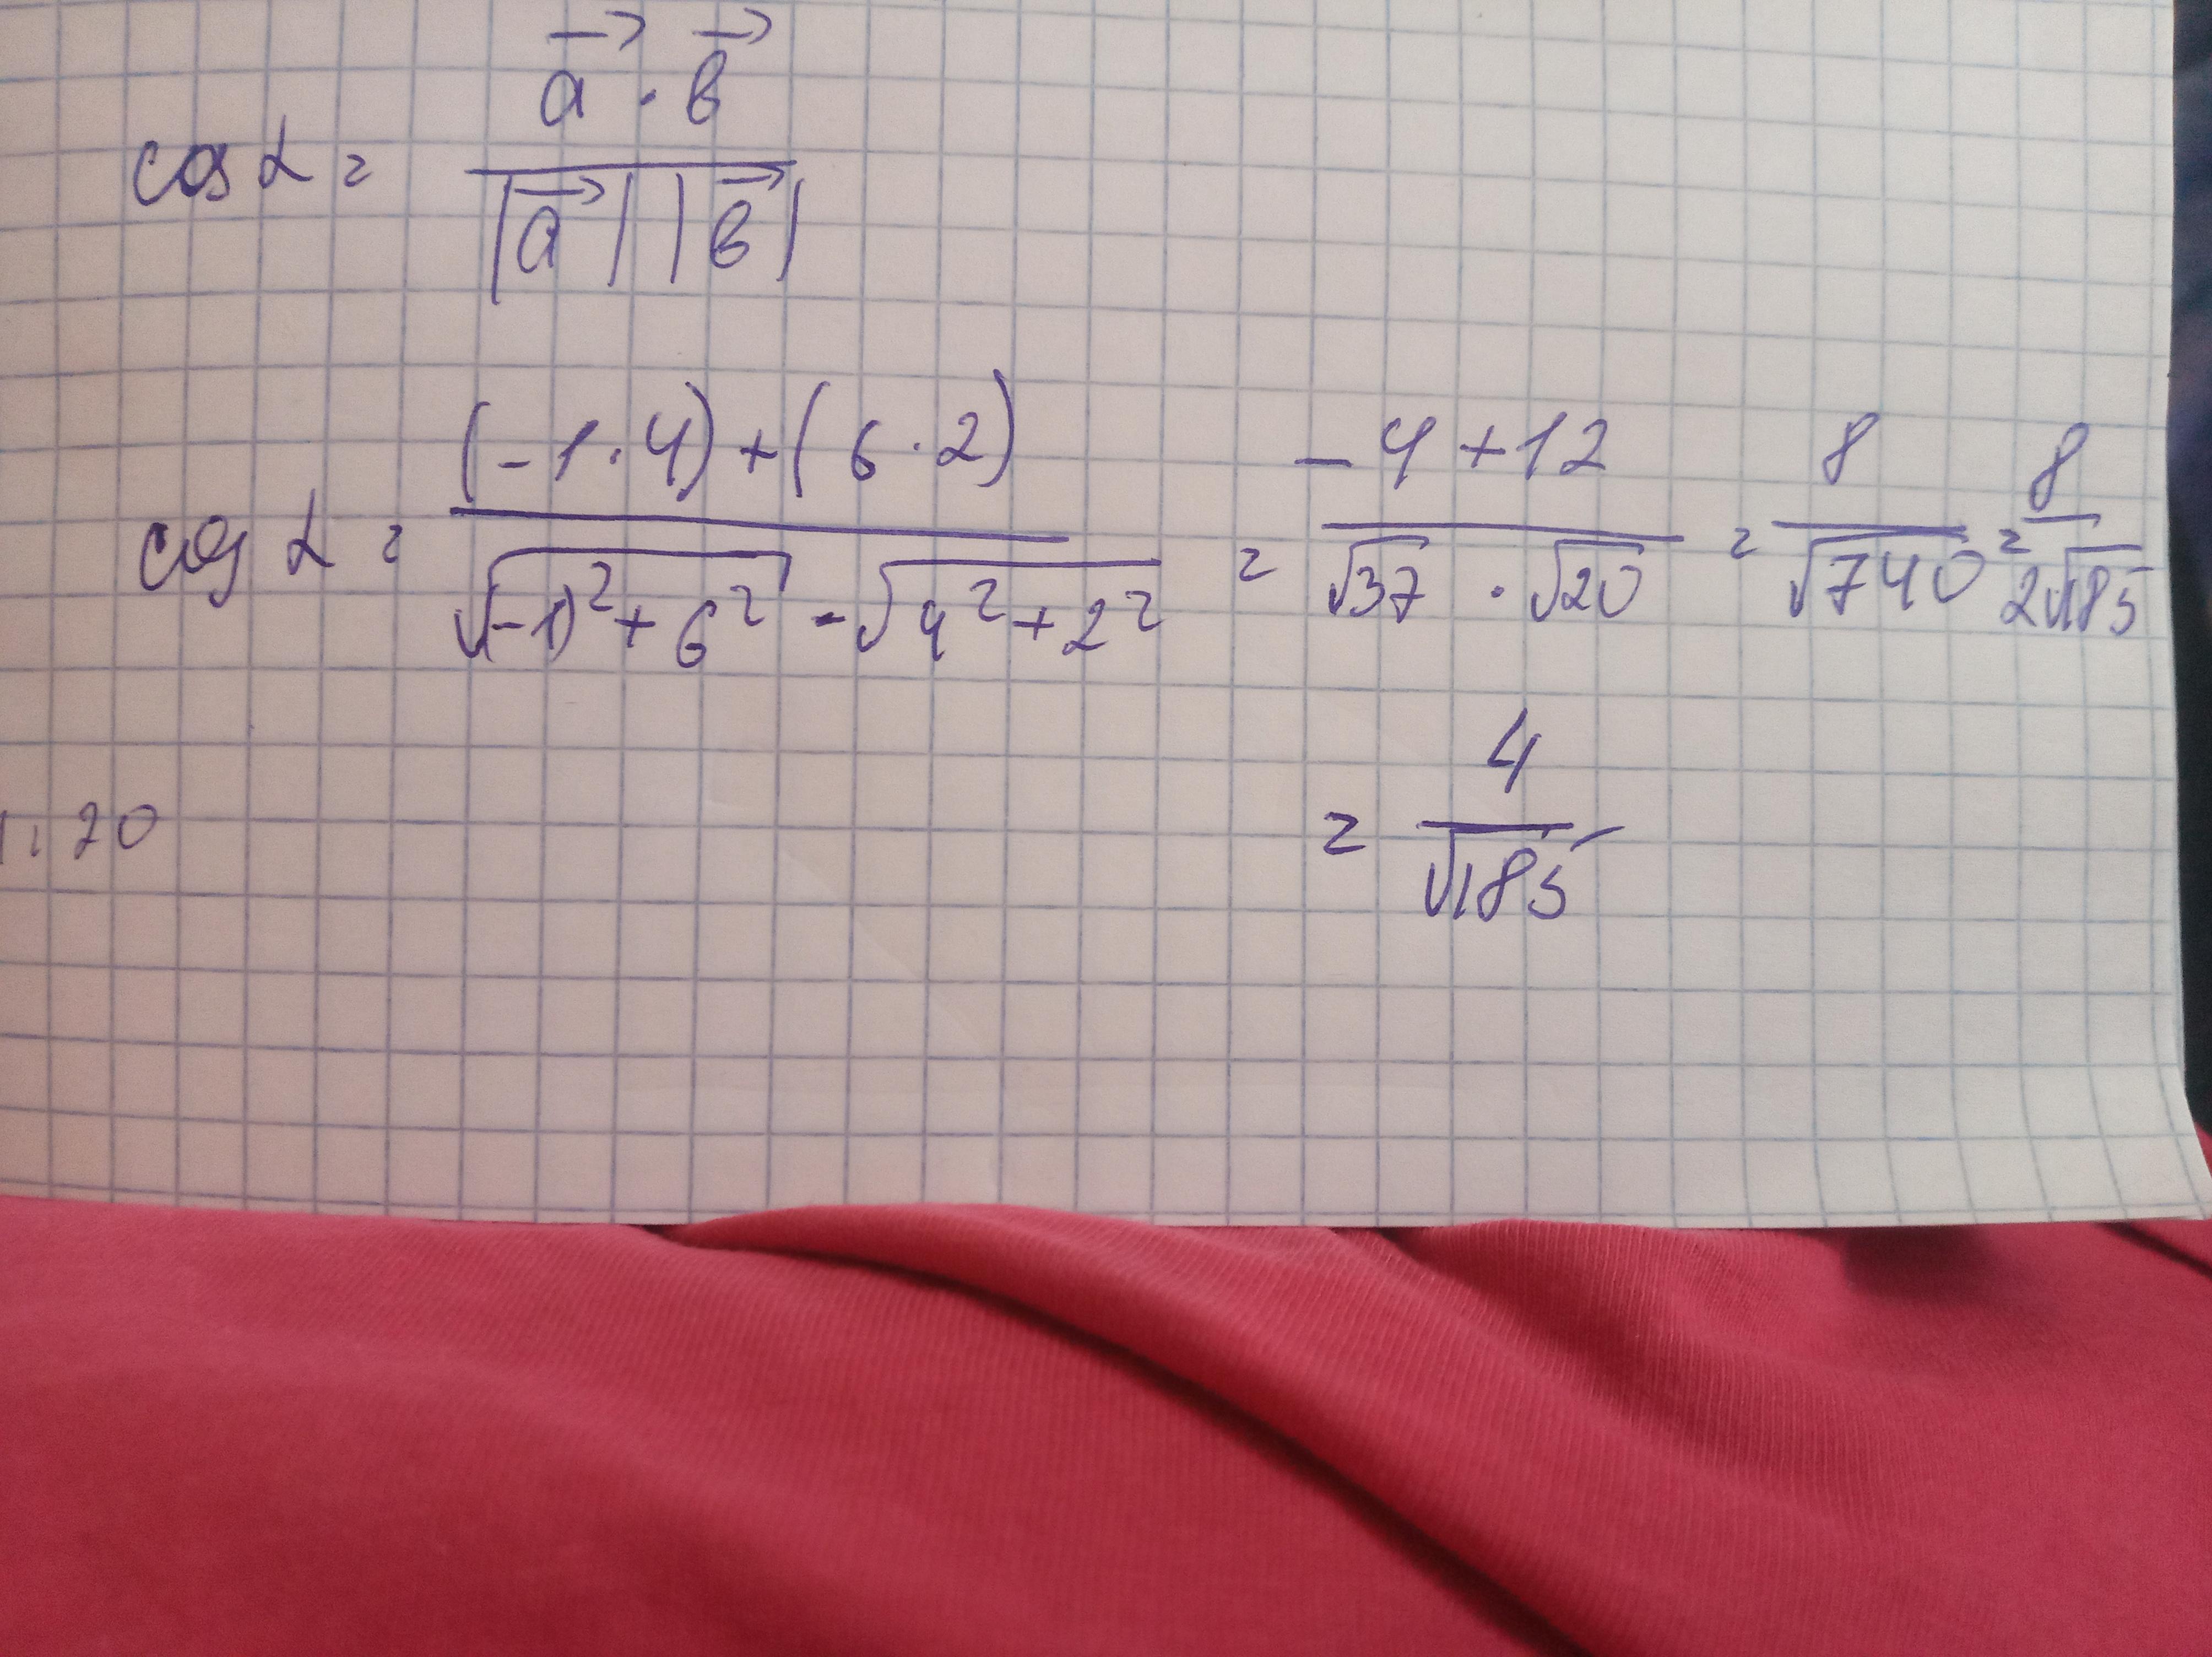 cos α = a⃗ · b⃗ / |a⃗| |b⃗|
cos α = (-1·4)+(6·2) / √(-1)²+6² · √4²+2² = -4+12 / √37 · √20 = 8 / √740 = 8 / 2√185
= 4 / √185
20